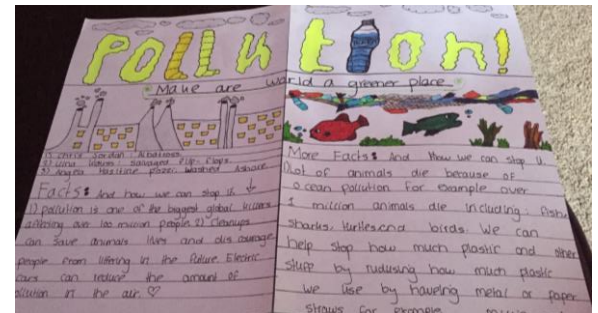 Pollution!
Make are world a greener place
1) Chris Jordan: Albatross
Facts: And how we can stop it ↓
1) pollution is one of the biggest global killers
affecting over 100 million people 2) Cleanups
can save animals lives and discourage
people from littering in the future Electric
cars can reduce the amount of
pollution in the air. ♡
More Facts: And How we can stop it.
lot of animals die because of
ocean pollution for example over
1 million animals die including: fish,
sharks, turtles, and birds. We can
help stop how much plastic and other
stuff by how much plastic
we use by metal or paper
straws for example